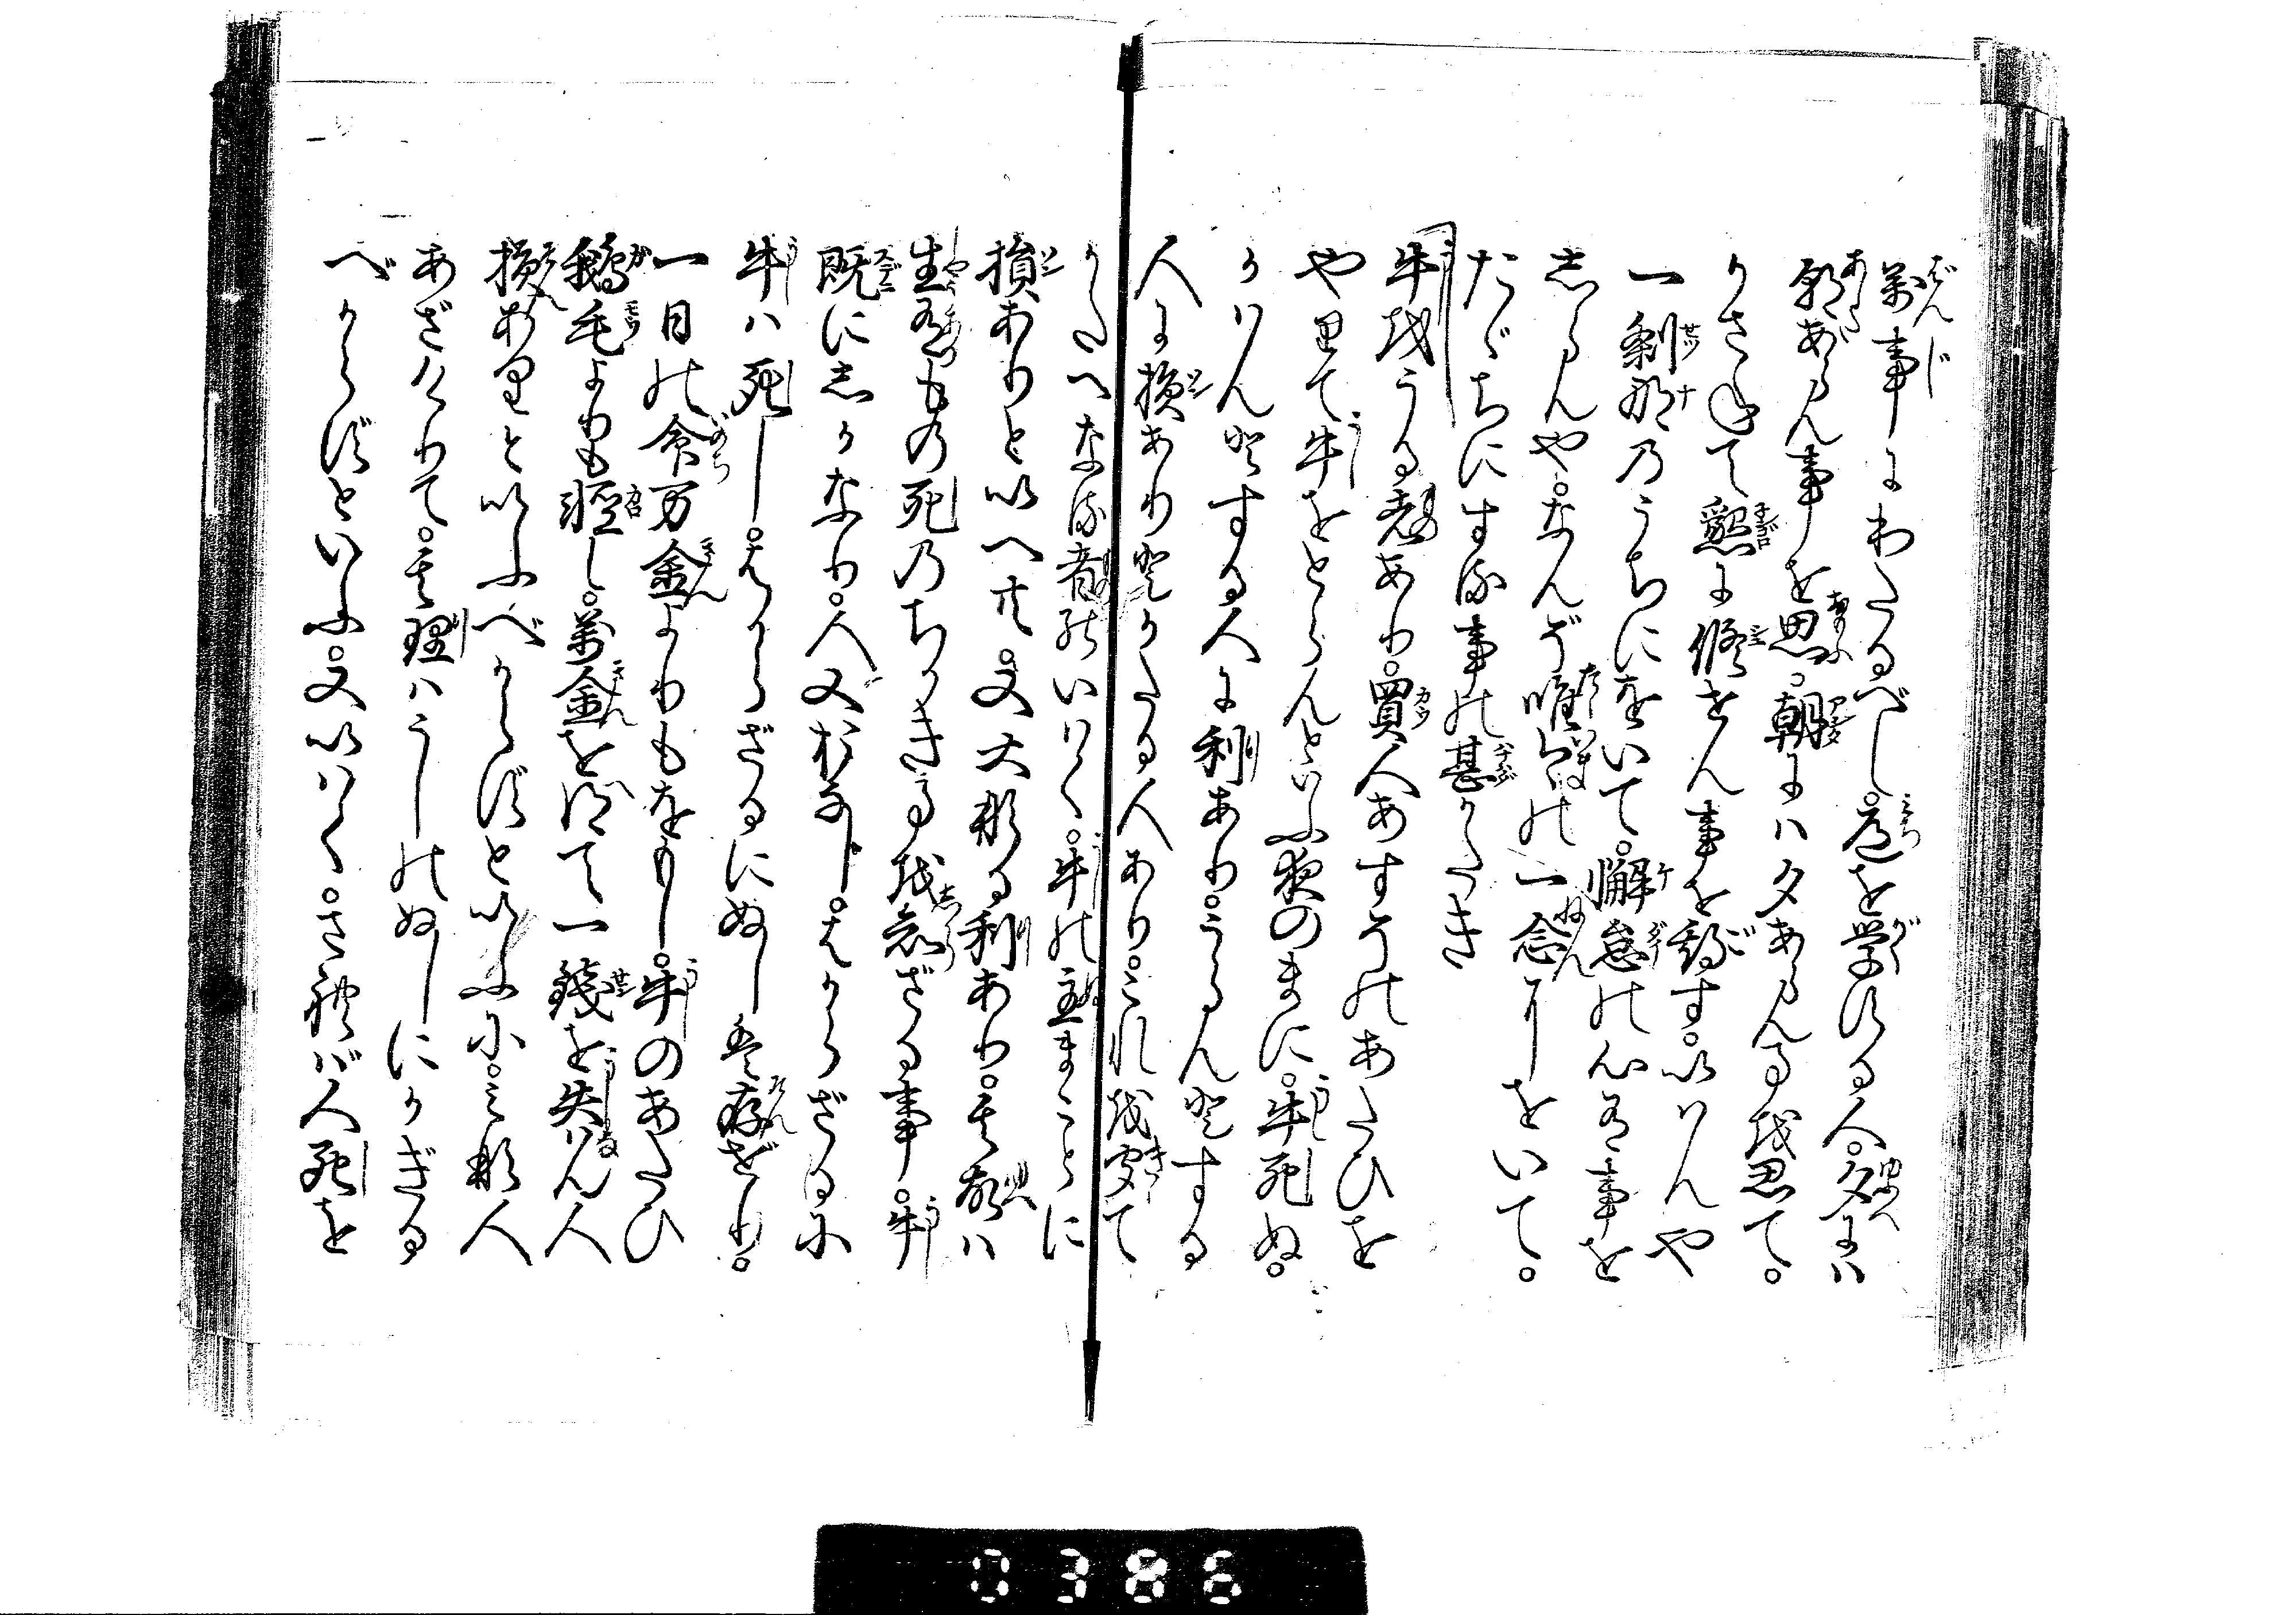 萬事にわたるべし。道を学する人。夕には
朝あらん事を思。朝には夕あらん事を思て。
かさねて懇に修せん事を期す。いはんや
一刹那のうちにをいて。懈怠の心有事を
しらんや。なんぞ唯今の一念にをいて。
たゞちにする事の甚かたき
牛をうる者あり。買人あすそのあたひを
やりて牛をとらんといふ夜のまに。牛死ぬ。
かはんとする人に利あり。うらんとする
人に損ありとかたる人あり。これを聞て
かたへなる者のいはく。牛の主まことに
損ありといへ共。又大なる利あり。其故は
生有もの死のちかき事を知ざる事。牛
既にしかなり。人又おなじ。はからざるに
牛は死し。はからざるにぬしは存ぜり。
一日の命万金よりもをもし。牛のあたひ
鵝毛よりも軽し。萬金を得て一銭を失はん人
損ありといふべからずといふに。みな人
あざけりて。其理はうしのぬしにかぎる
べからずといふ。又いはく。されば人死を
0386